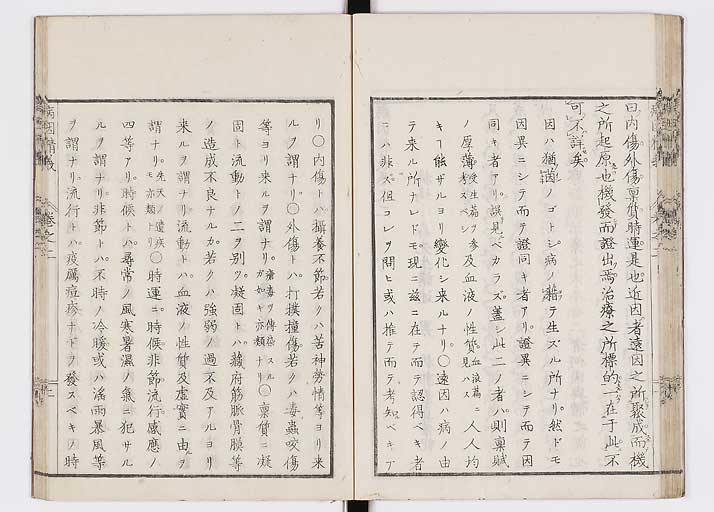 曰内傷外傷稟質時運是也近因者遠因之所聚成而機
之所起原也機發而證出焉治療之所標的一在于此不
可不詳矣
因ハ猶因ノゴトシ病ノ藉テ生ズル所ナリ然ドモ
因異ニシテ而テ證同キ者アリ證異ニシテ而テ因
同キ者アリ誤見ベカラズ蓋シ此二ノ者ハ則稟賦
ノ厚薄及血液ノ性質人人均
キヿ能ザルヨリ變化シ来ルナリ〇遠因ハ病ノ由
テ来ル所ナレドモ現ニ茲ニ在テ而テ認得ベキ者
ニハ非ズ但コレヲ問ヒ或ハ推テ而テ考知ベキナ
リ〇内傷トハ攝養不節若クハ苦神勞情等ヨリ来
ルヲ謂ナリ〇外傷トハ打撲撞傷若クハ毒蟲咬傷
等ヨリ来ルヲ謂ナリ〇稟質ニ凝
固ト流動トノ二ヲ別ツ凝固トハ藏府筋脈骨膜等
ノ造成不良ナルカ若クハ強弱ノ過不及アルヨリ
来ルヲ謂ナリ流動トハ血液ノ性質及虚實ニ由ヲ
謂ナリ〇時運ニ時候非節流行感應ノ
四等アリ時候トハ尋常ノ風寒暑濕ノ氣ニ犯サル
ルヲ謂ナリ非節トハ不時ノ冷暖或ハ滛雨暴風等
ヲ謂ナリ流行トハ疫厲痘疹ナドヲ發スベキノ時